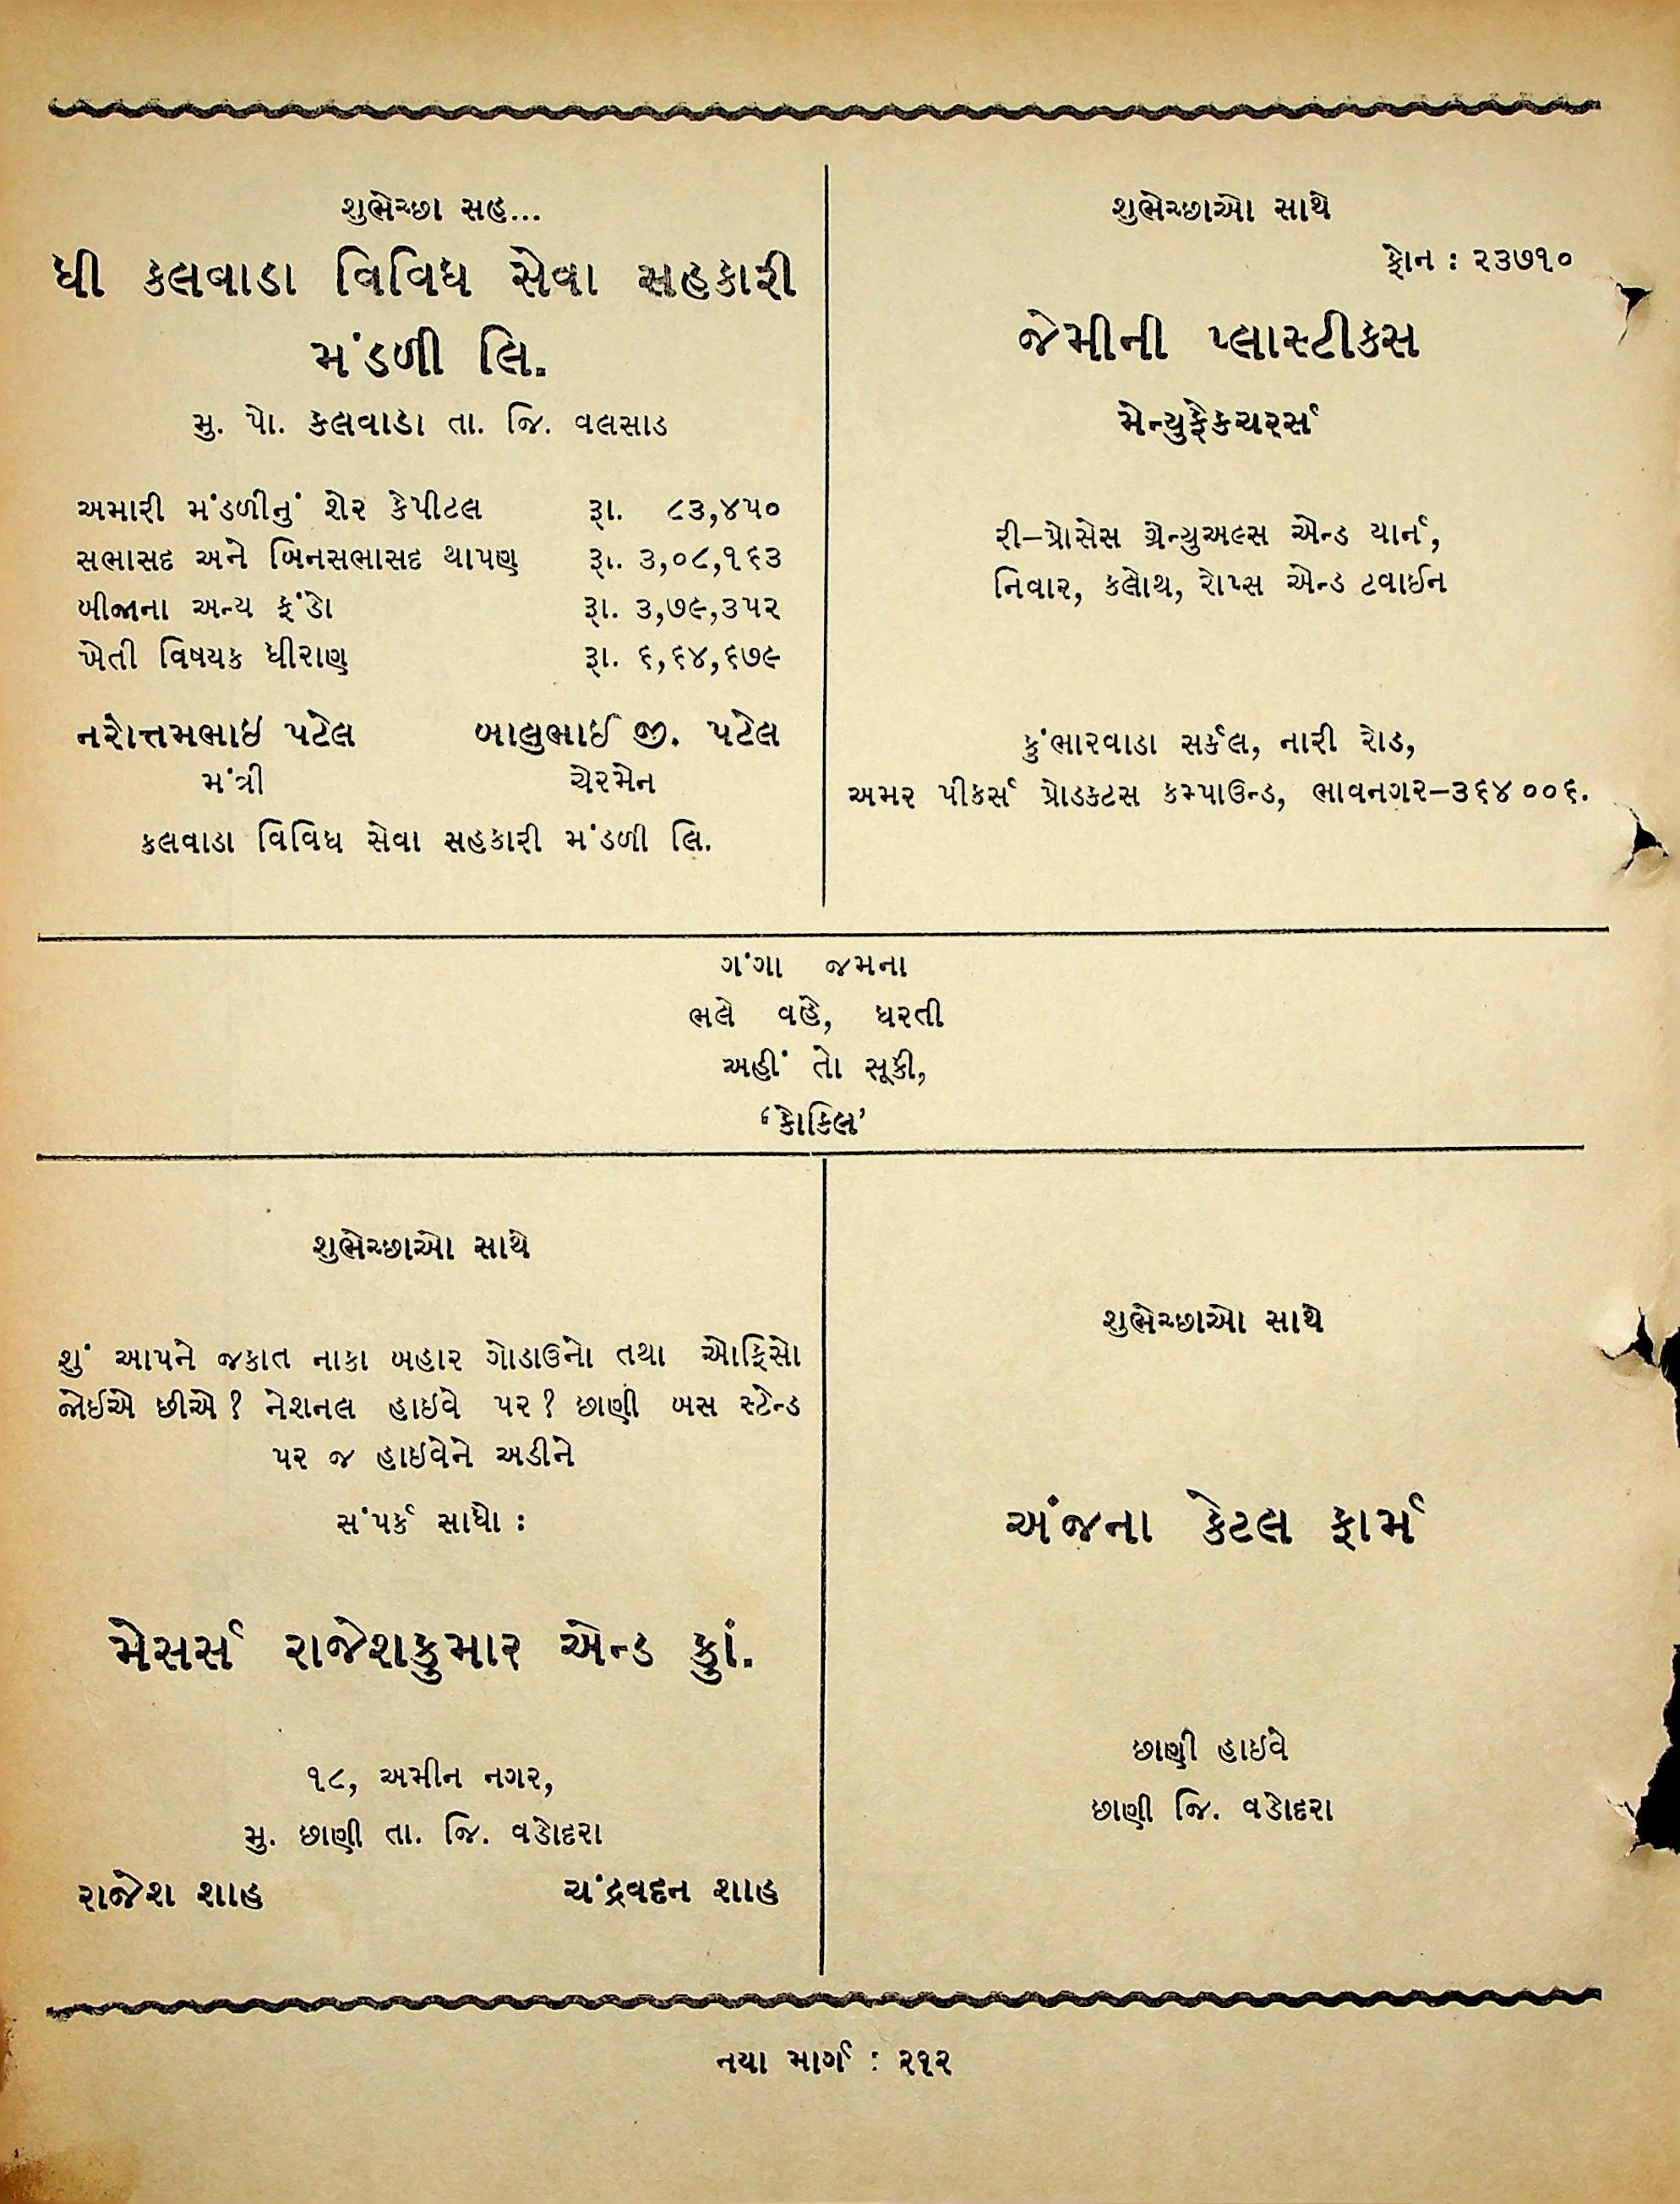 શુભેચ્છા સહ...
ધી કલવાડા વિવિધ સેવા સહકારી
મંડળી લિ.
મુ. પો. કલવાડા તા. જિ. વલસાડ
અમારી મંડળીનું શેર કેપીટલ રૂા. ૮૩,૪૫૦
સભાસદ અને બિનસભાસદ થાપણ રૂા. ૩,૦૮,૧૬૩
બીજાના અન્ય ફંડો રૂા. ૩,૭૯,૩૫૨
ખેતી વિષયક ધીરાણ રૂા. ૬,૬૪,૬૭૯
નરોત્તમભાઇ પટેલ બાલુભાઈ જી. પટેલ
મંત્રી ચેરમેન
કલવાડા વિવિધ સેવા સહકારી મંડળી લિ.
શુભેચ્છાઓ સાથે
ફોન : ૨૩૭૧૦
જેમીની પ્લાસ્ટીકસ
મેન્યુફેકચરર્સ
રી–પ્રોસેસ ગ્રેન્યુઅલ્સ એન્ડ યાર્ન,
નિવાર, કલોથ, રોપ્સ એન્ડ ટવાઈન
કુંભારવાડા સર્કલ, નારી રોડ,
અમર પીકર્સ પ્રોડકટસ કમ્પાઉન્ડ, ભાવનગર–૩૬૪ ૦૦૬.
ગંગા જમના
ભલે વહે, ધરતી
અહીં તો સૂકી,
‘કોકિલ’
શુભેચ્છાઓ સાથે
શું આપને જકાત નાકા બહાર ગોડાઉનો તથા ઓફિસો
જોઈએ છીએ? નેશનલ હાઇવે પર? છાણી બસ સ્ટેન્ડ
પર જ હાઇવેને અડીને
સંપર્ક સાધો :
મેસર્સ રાજેશકુમાર એન્ડ કું.
૧૮, અમીન નગર,
મુ. છાણી તા. જિ. વડોદરા
રાજેશ શાહ ચંદ્રવદન શાહ
શુભેચ્છાઓ સાથે
અંજના કેટલ ફાર્મ
છાણી હાઇવે
છાણી જિ. વડોદરા
નયા માર્ગ : ૨૧૨